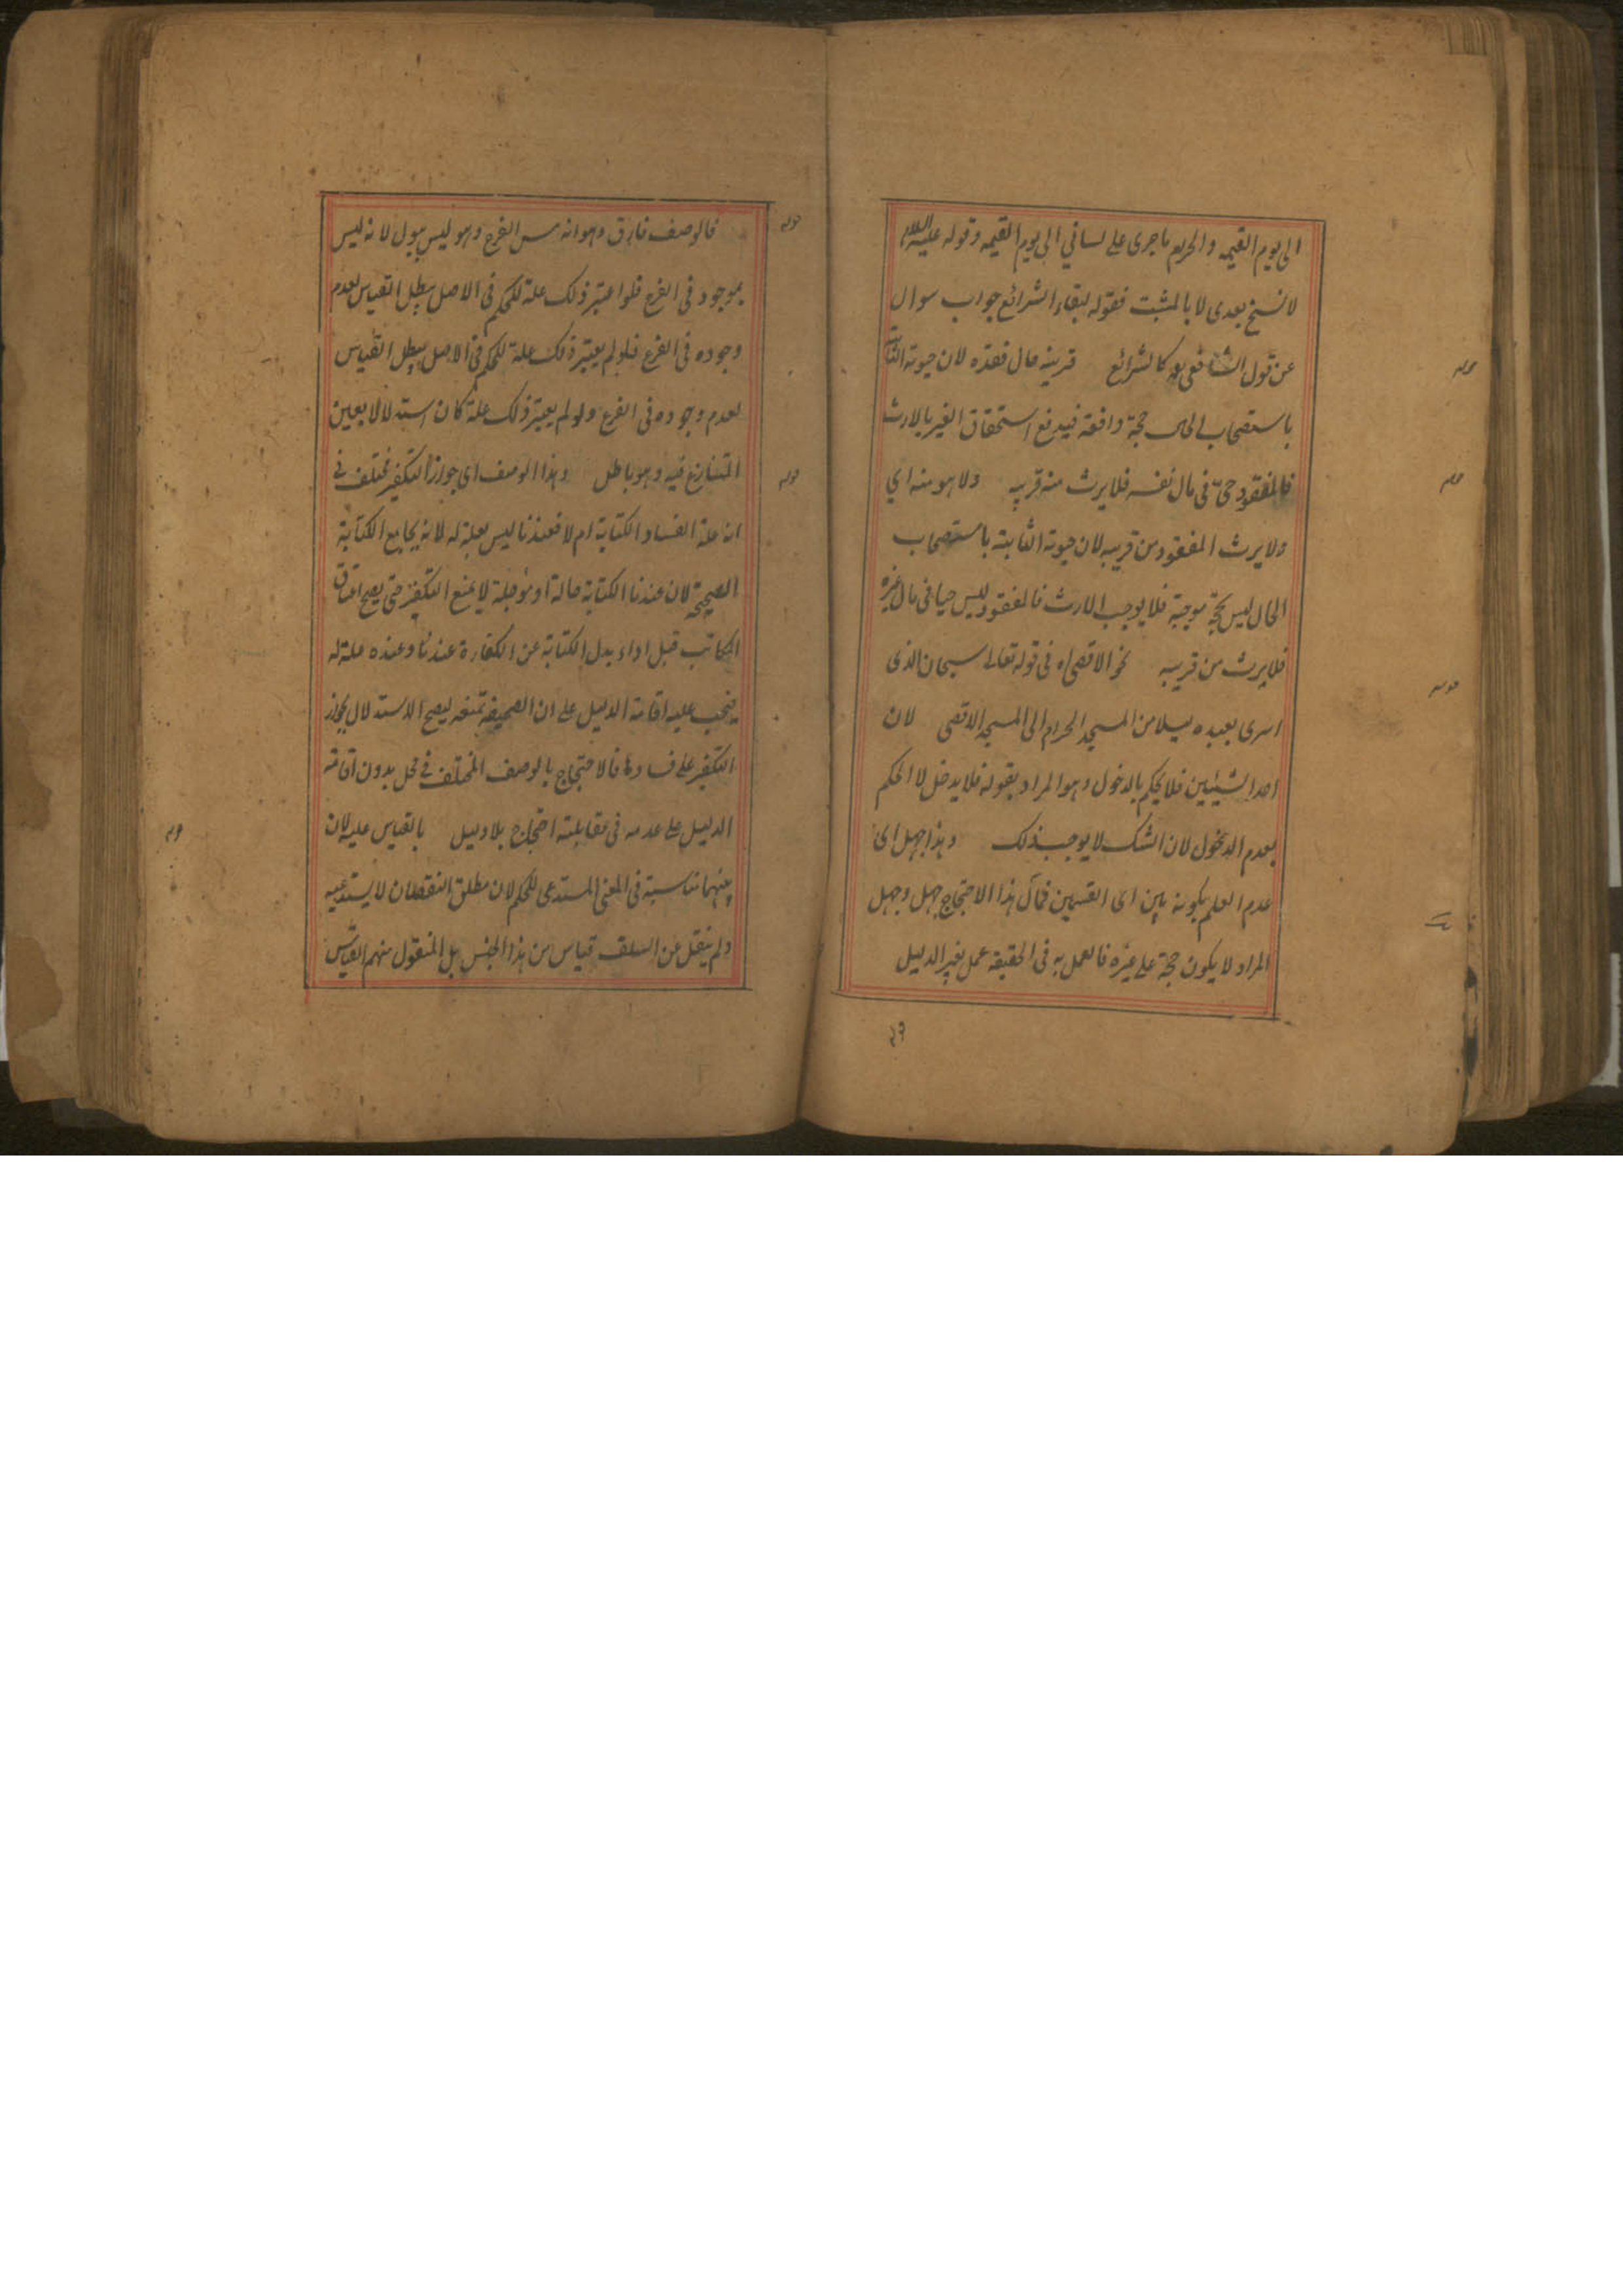 الى يوم القيمه والحرام ما جرى على لساني الى يوم القيمه وقوله عليه السلام
لا نسخ بعدى لا بالمثبت فقوله لبقاء الشرائع جواب سوال
عن قول الشافعى رح كالشرائع قرينه حال فقده لان حيوته الثابتة
باستصحاب الحال حجة دافعة فيدفع استحقاق الغير بالارث
فالمفقود حىّ فى مال نفسه فلا يرث منه قريبه ولا هو منه اي
ولا يرث المفقود من قريبه لان حيوته الثابتة باستصحاب
الحال ليس بحجة موجبة فلا يوجب الارث فالمفقود ليس حيا فى مال غيره
فلا يرث من قريبه نحو الاقصى اه فى قوله تعالى سبحان الذى
اسرى بعبده ليلا من المسجد الحرام الى المسجد الاقصى لان
احد الشيئين فلا يحكم بالدخول وهو المراد بقوله فلا يدخل لا الحكم
بعدم الدخول لان الشك لا يوجب ذلك وهذا جهل اى
عدم العلم بكونه باين اى القسمين فمآل هذا الاحتجاج جهل وجهل
المراد لا يكون حجة على غيره فالعمل به فى الحقيقة عمل بغير الدليل
قوله
قوله
قوله
قوله
فالوصف فارق وهو انه مس الفرج وهو ليس ببول لانه ليس
بموجود فى الفرع فلو اعتبر ذلك علة للحكم فى الاصل يبطل القياس لعدم
وجوده فى الفرع فلو لم يعتبر ذلك علة للحكم فى الاصل يبطل القياس
لعدم وجوده فى الفرع ولو لم يعتبر ذلك علة كان استدلالا بعين
المتنازع فيه وهو باطل وهذا الوصف اى جواز التكفير مختلف فى
انه علة الفساد الكتابة ام لا فعندنا ليس بعلة له لانه يجامع الكتابة
الصحيحة لان عندنا الكتابة حالة او مؤجلة لا يمنع التكفير حتى يصح اعتاق
المكاتب قبل اداء بدل الكتابة عن الكفارة عندنا وعنده علة له
فيجب عليه اقامة الدليل على ان الصحيفة تمنعه ليصح الاستدلال بجواز
التكفير على فسادها فالاحتجاج بالوصف المختلف فى محل بدون اقامة
الدليل على عدمه فى مقابلته احتجاج بلا دليل بالقياس عليه لان
بينهما مناسبة فى المعنى المستدعى للحكم لان مطلق النقصان لا يستدعيه
ولم ينقل عن السلف قياس من هذا الجنس بل المنقول منهم القياس
قوله
قوله
قوله